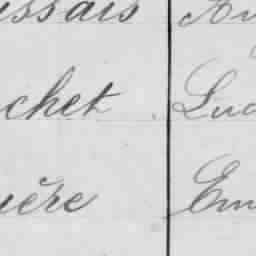 ssais Au
chet Luc
uère Em